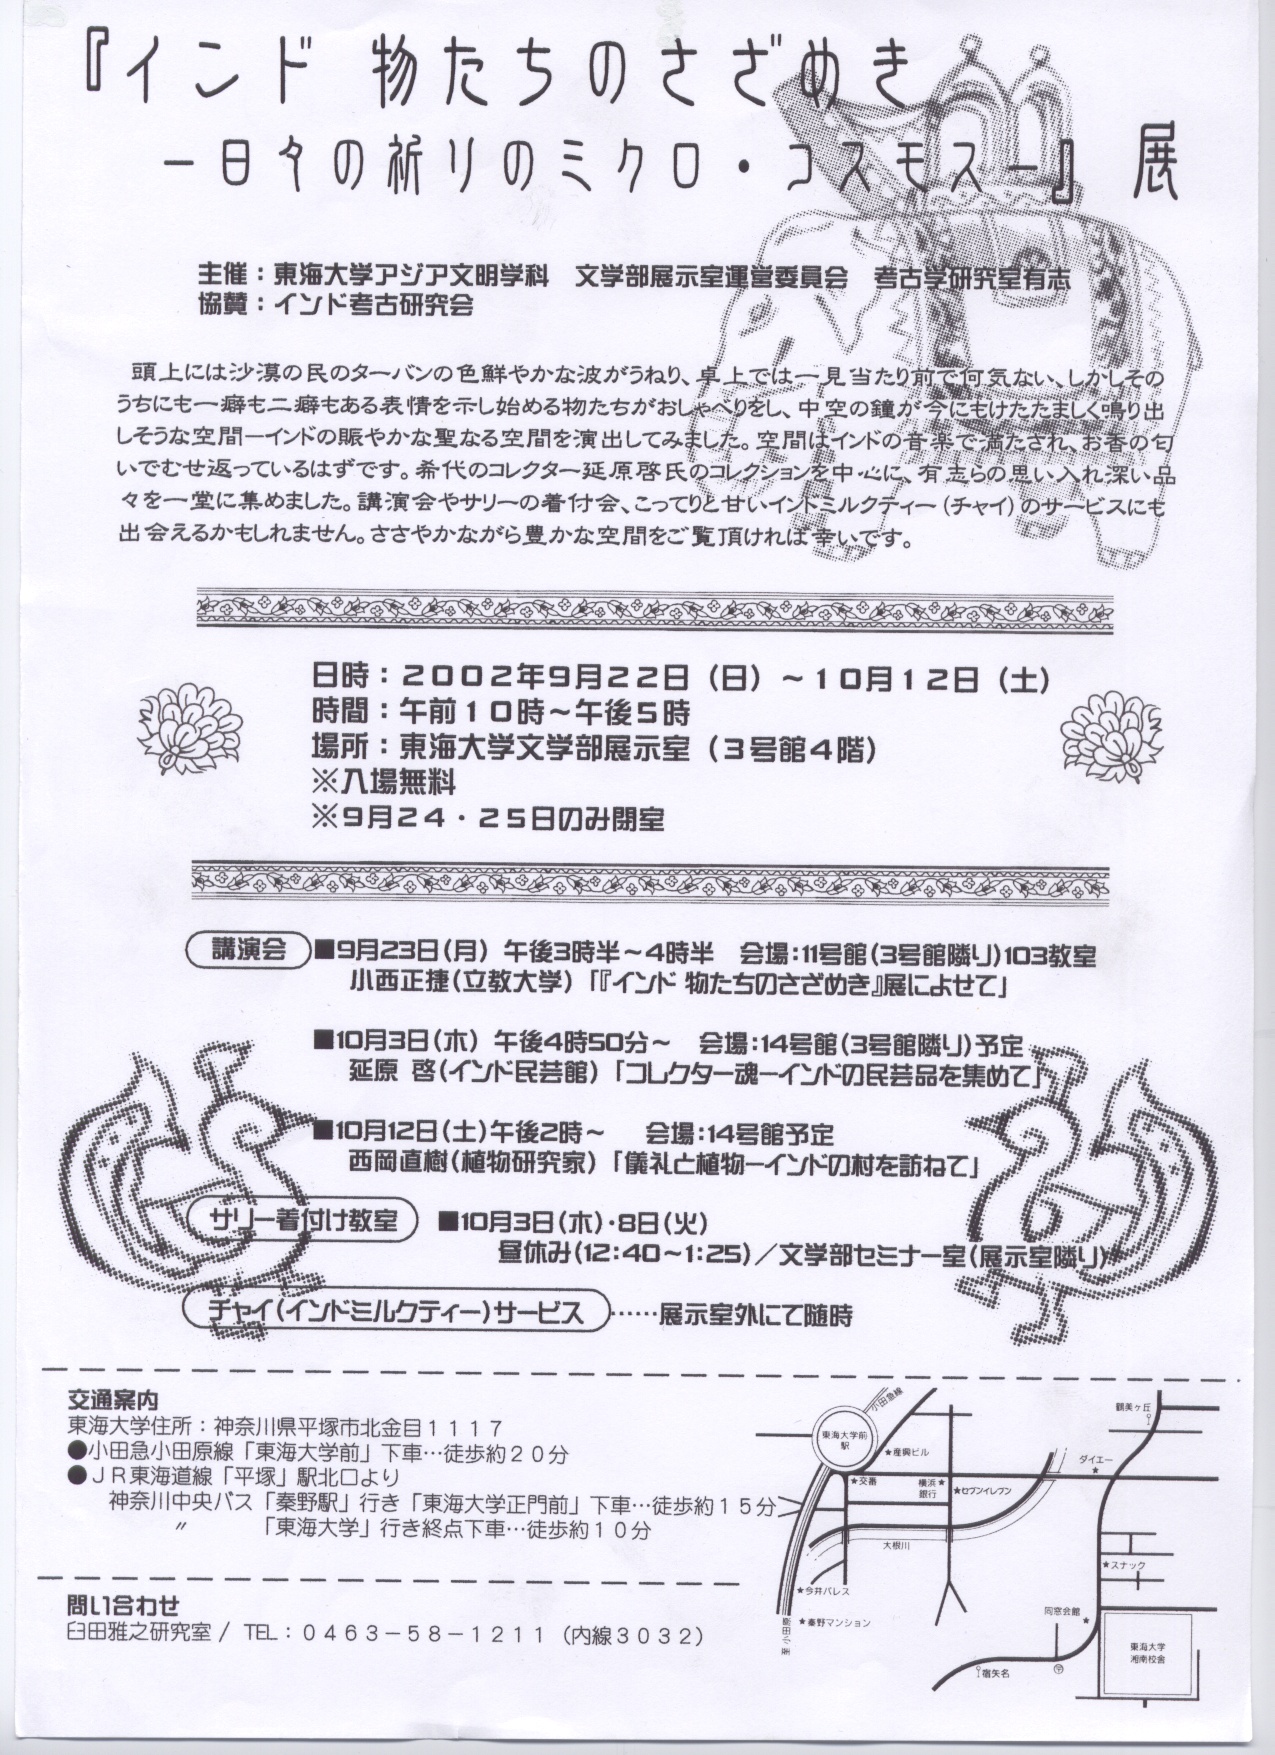 『インド 物たちのさざめき
－日々の祈りのミクロ・コスモス－』展
主催：東海大学アジア文明学科　文学部展示室運営委員会　考古学研究室有志
協賛：インド考古研究会
頭上には沙漠の民のターバンの色鮮やかな波がうねり、卓上では一見当たり前で何気ない、しかしその
うちにも一癖も二癖もある表情を示し始める物たちがおしゃべりをし、中空の鐘が今にもけたたましく鳴り出
しそうな空間－インドの賑やかな聖なる空間を演出してみました。空間はインドの音楽で満たされ、お香の匂
いでむせ返っているはずです。希代のコレクター延原啓氏のコレクションを中心に、有志らの思い入れ深い品
々を一堂に集めました。講演会やサリーの着付会、こってりと甘いインドミルクティー（チャイ）のサービスにも
出会えるかもしれません。ささやかながら豊かな空間をご覧頂ければ幸いです。
日時：２００２年９月２２日（日）～１０月１２日（土）
時間：午前１０時～午後５時
場所：東海大学文学部展示室（３号館４階）
※入場無料
※９月２４・２５日のみ閉室
講演会 ■9月23日(月) 午後3時半～4時半　会場:11号館(3号館隣り)103教室
小西正捷(立教大学)「『インド 物たちのさざめき』展によせて」
■10月3日(木) 午後4時50分～　会場:14号館(3号館隣り)予定
延原 啓(インド民芸館)「コレクター魂－インドの民芸品を集めて」
■10月12日(土)午後2時～　会場:14号館予定
西岡直樹(植物研究家)「儀礼と植物－インドの村を訪ねて」
サリー着付け教室 ■10月3日(木)・8日(火)
昼休み(12:40～1:25)／文学部セミナー室(展示室隣り)
チャイ(インドミルクティー)サービス ……展示室外にて随時
交通案内
東海大学住所：神奈川県平塚市北金目１１１７
●小田急小田原線「東海大学前」下車…徒歩約２０分
●ＪＲ東海道線「平塚」駅北口より
神奈川中央バス「秦野駅」行き「東海大学正門前」下車…徒歩約１５分
〃　「東海大学」行き終点下車…徒歩約１０分
問い合わせ
臼田雅之研究室 / TEL：０４６３－５８－１２１１（内線３０３２）
小田急線
東海大学前
駅
★産興ビル
★交番
横浜★
銀行
★セブンイレブン
大根川
★今井パレス
★秦野マンション
至小田原
鶴美ヶ丘
ダイエー
★
★スナック
同窓会館
★
宿矢名
東海大学
湘南校舎